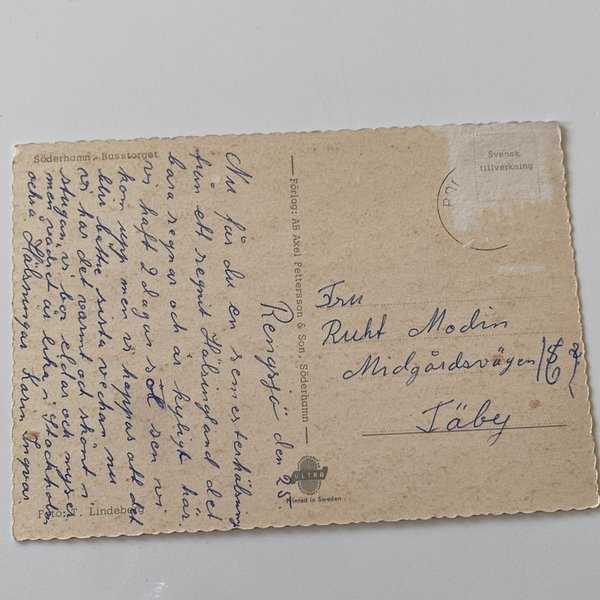 Söderhamn. Busstorget
Svensk
tillverkning
Förlag: AB Axel Pettersson & Son, Söderhamn
Rengsjö den 25.
Nu får du en semesterhälsning
från ett regnit Hälsingland det
bara regnar och är kyligt här.
vi haft 2 dagar sol sen vi
kom upp men vi hoppas att det
blir bättre sista veckan nu
vi har det varmt och skönt i
stugan, vi bor eldar och myser
men vädret är lika i Stockholm
också. Hälsningar Karin Ingvar.
Fru
Ruht Modin
Midgårdsvägen
Täby
ULTRA
Printed in Sweden
Foto: T. Lindeberg